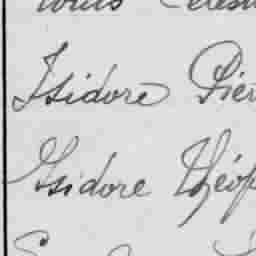 Louis Célest
Isidore Pier
Isidore Théop